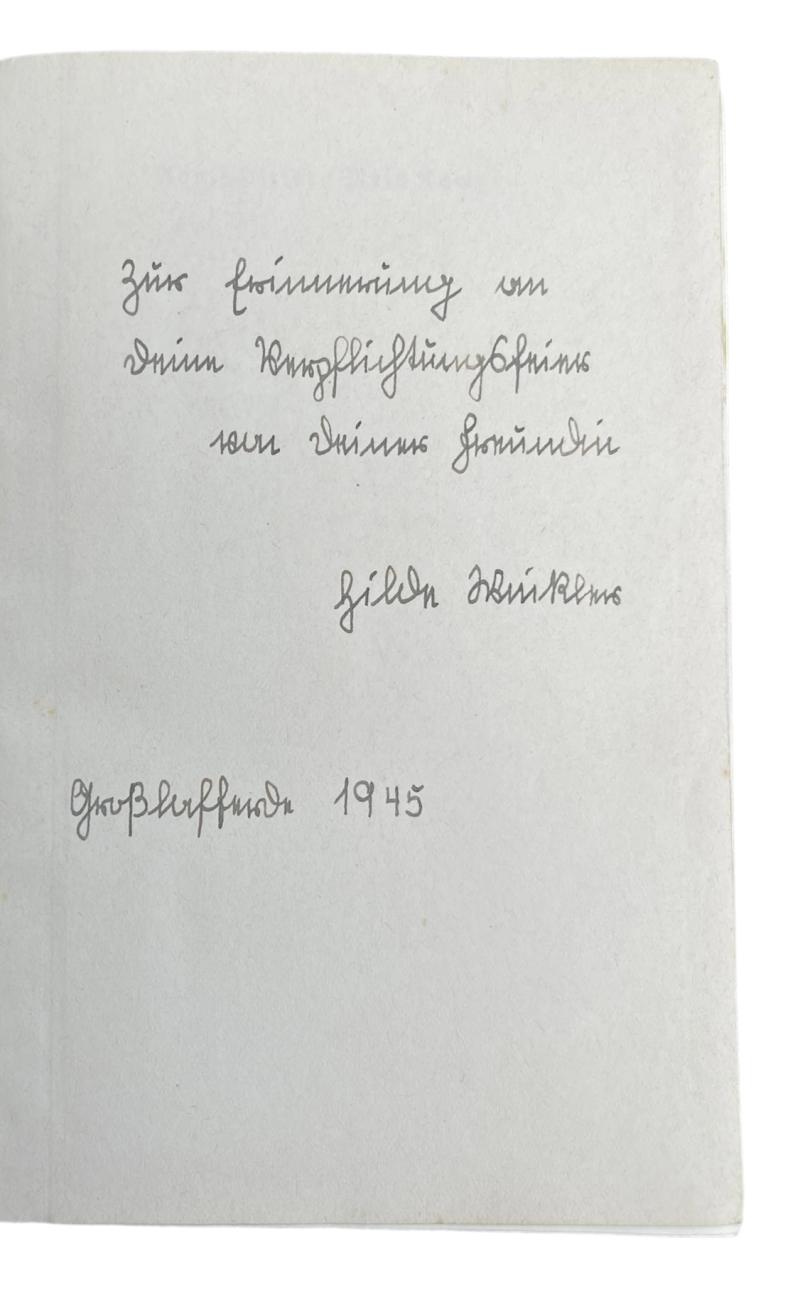 Zur Erinnerung an
Deine Verpflichtungsfeier
von Deiner Freundin
Hilde Winkler
Großlafferde 1945